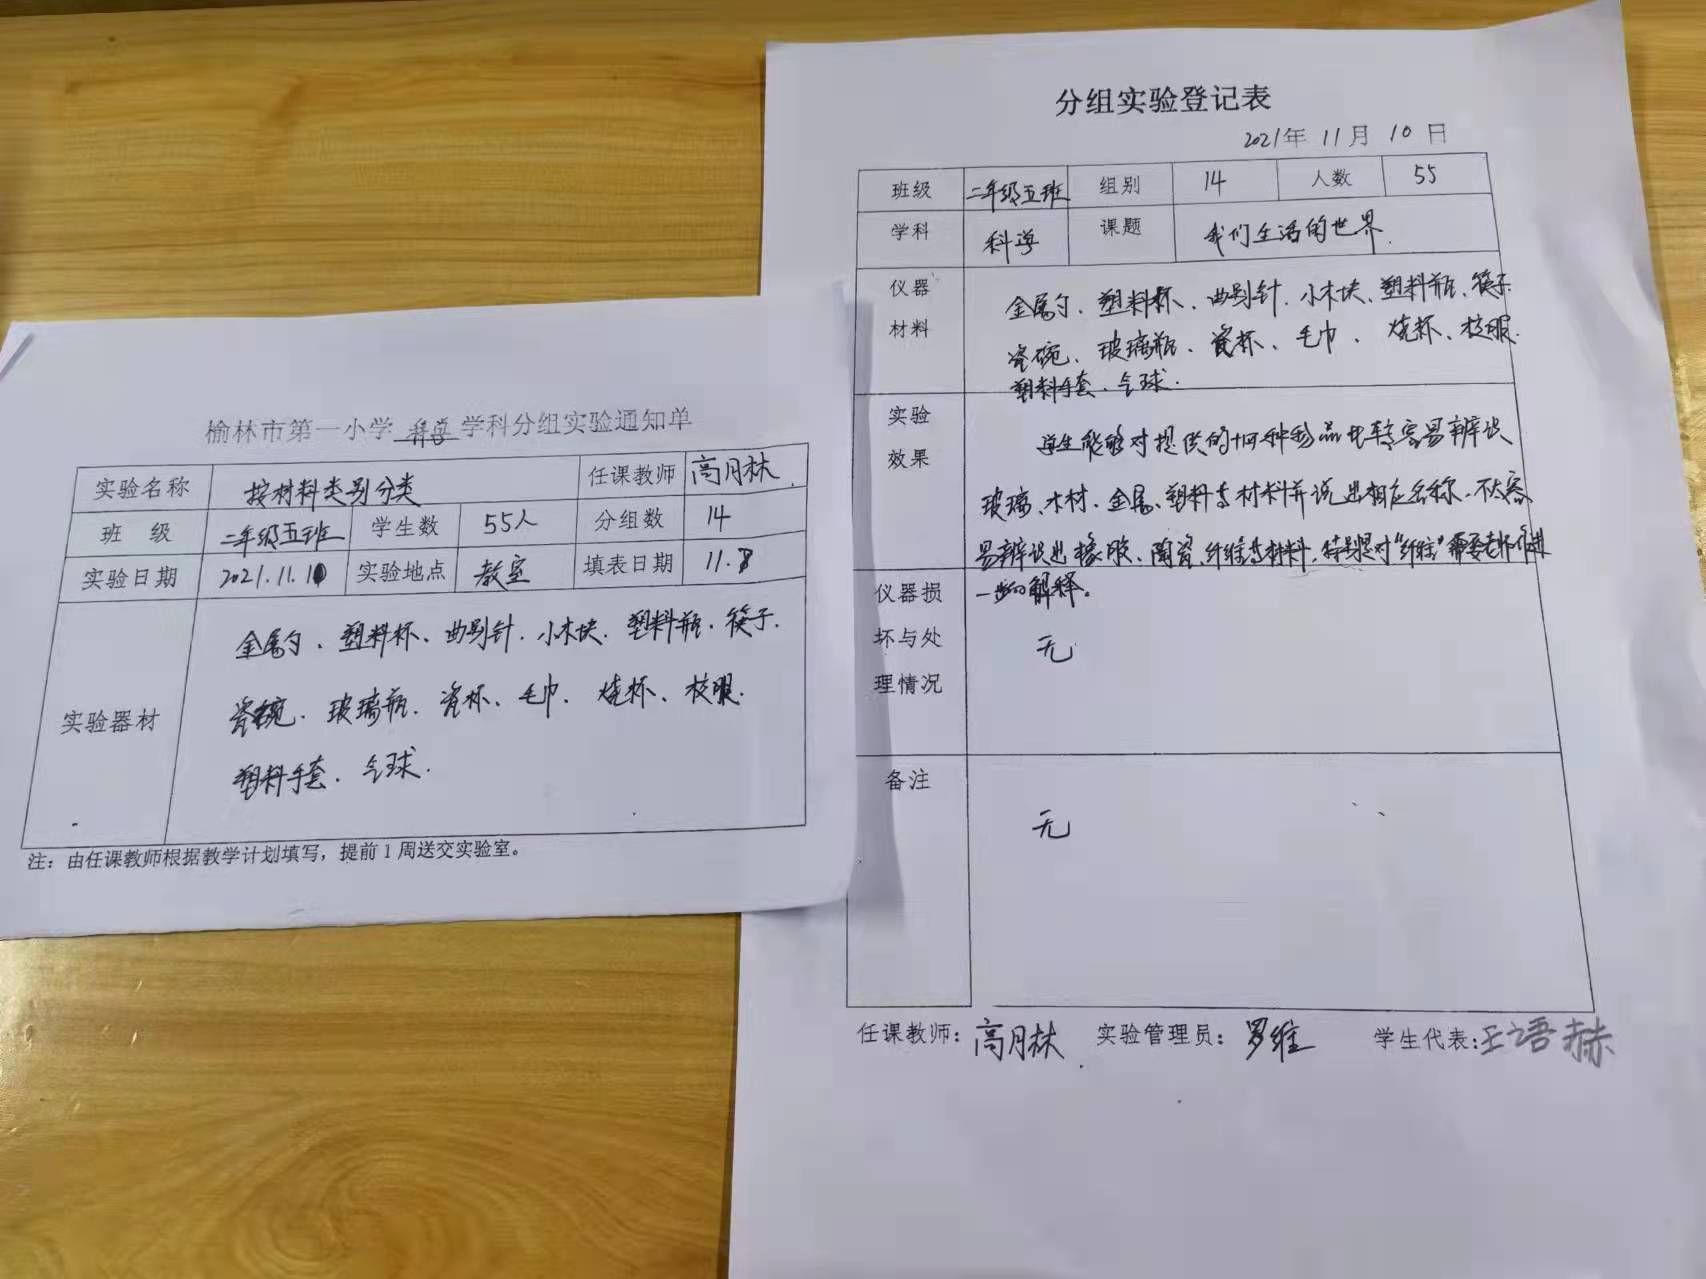 榆林市第一小学 科学 学科分组实验通知单
实验名称 按材料类别分类 任课教师 高月林
班 级 二年级五班 学生数 55人 分组数 14
实验日期 2021.11.10 实验地点 教室 填表日期 11.8
实验器材
金属勺、塑料杯、曲别针、小木块、塑料瓶、筷子、
瓷碗、玻璃瓶、瓷杯、毛巾、烧杯、校服、
塑料手套、气球.
注：由任课教师根据教学计划填写，提前1周送交实验室。
分组实验登记表
2021年 11月 10日
班级 二年级五班 组别 14 人数 55
学科 科学 课题 我们生活的世界.
仪器
材料
金属勺、塑料杯、曲别针、小木块、塑料瓶、筷子
瓷碗、玻璃瓶、瓷杯、毛巾、烧杯、校服.
塑料手套、气球.
实验
效果
学生能够对提供的十四种物品比较容易辨识
玻璃、木材、金属、塑料等材料并说出相应名称、不太容
易辨识出橡胶、陶瓷、纤维等材料，特别是对“纤维”需要老师进
一步的解释。
仪器损
坏与处
理情况
无
备注
无
任课教师：高月林 实验管理员：罗维 学生代表：王语赫